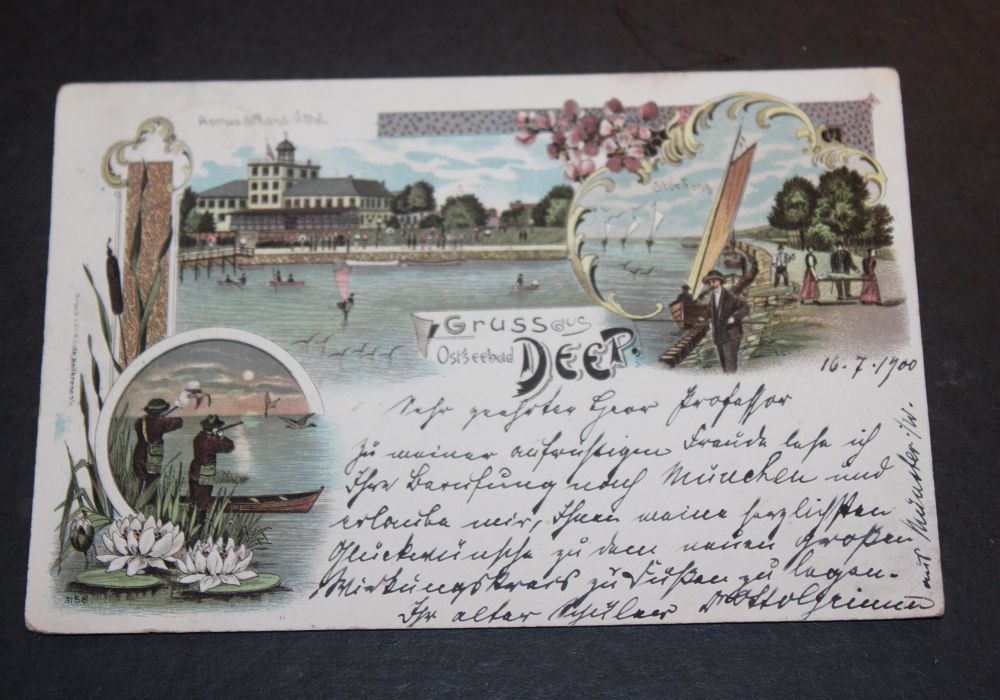 Strand-Hotel.
Störfang
Gruss aus
Ostseebad DEEP.
16. 7. 1900
Sehr geehrter Herr Professor
Zu meiner aufrichtigen Freude lese ich
Ihre Berufung nach München und
erlaube mir, Ihnen meine herzlichsten
Glückwünsche zu dem neuen großen
Wirkungskreis zu Füßen zu legen.
Ihr alter Schüler
aus Münster i/W.
3158